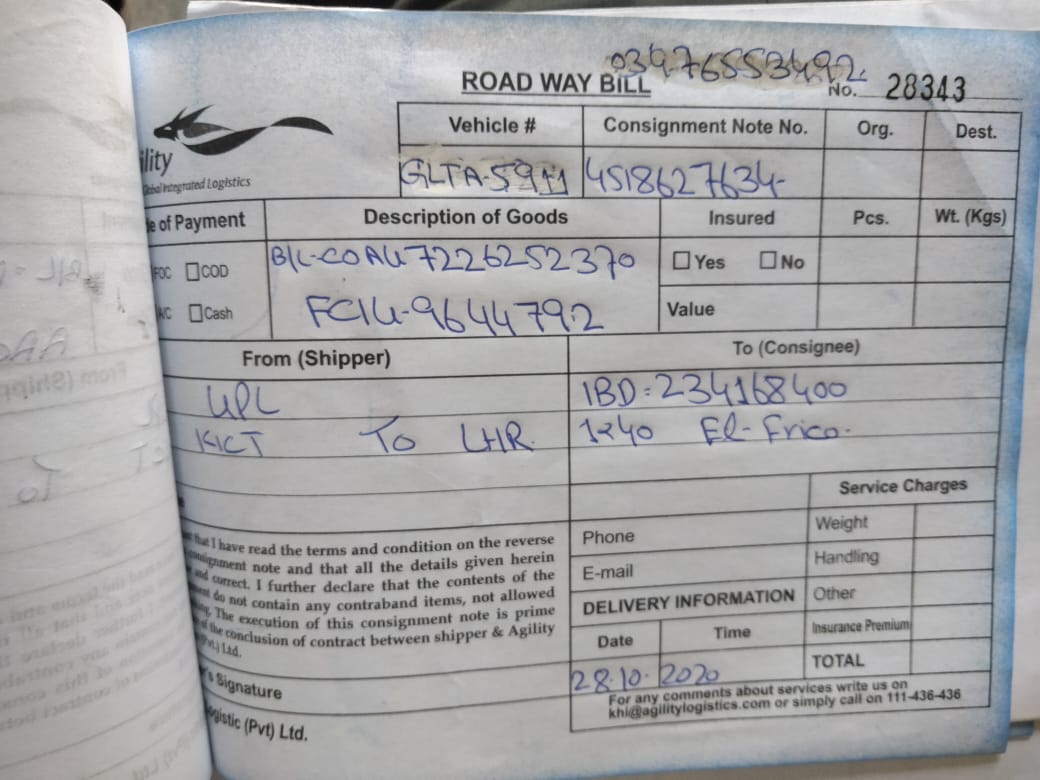 03476553492
ROAD WAY BILL
No. 28343
ility
Global Integrated Logistics
Vehicle # Consignment Note No. Org. Dest.
GLTA-5911 4518627634-
e of Payment Description of Goods Insured Pcs. Wt. (Kgs)
FOC COD B/L-COAU7226252370 Yes No
A/C Cash FCIU-9644792 Value
From (Shipper) To (Consignee)
UPL IBD=234168400
KICT To LHR. 1x40 El-Frico.
Service Charges
that I have read the terms and condition on the reverse
consignment note and that all the details given herein
and correct. I further declare that the contents of the
do not contain any contraband items, not allowed
The execution of this consignment note is prime
of the conclusion of contract between shipper & Agility
(Pvt.) Ltd.
Phone Weight
E-mail Handling
DELIVERY INFORMATION Other
Date Time Insurance Premium
28.10.2020 TOTAL
's Signature
For any comments about services write us on
khi@agilitylogistics.com or simply call on 111-436-436
ogistic (Pvt) Ltd.